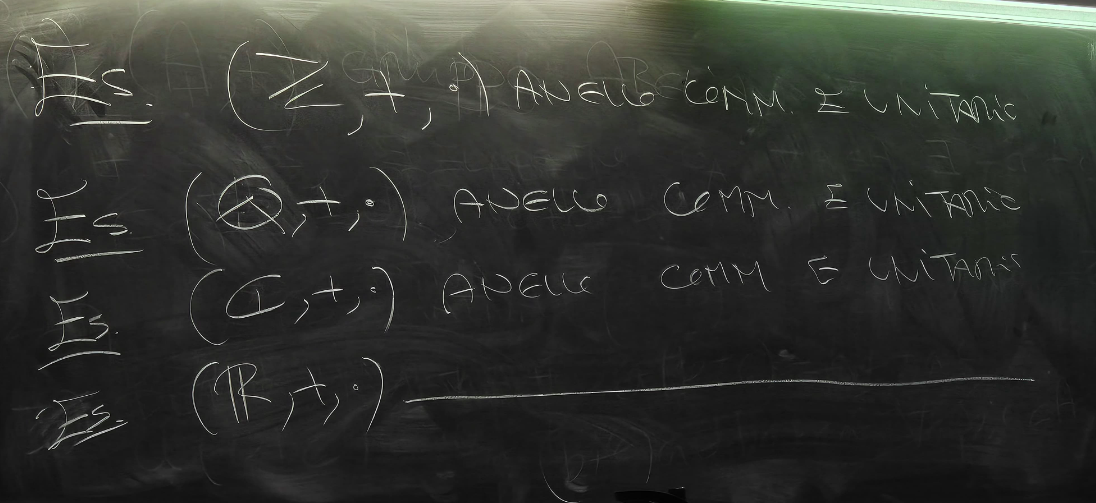 Es. (ℤ, +, ·) ANELLO COMM. E UNITARIO
Es. (ℚ, +, ·) ANELLO COMM. E UNITARIO
Es. (ℂ, +, ·) ANELLO COMM E UNITARIO
Es. (ℝ, +, ·) ―――